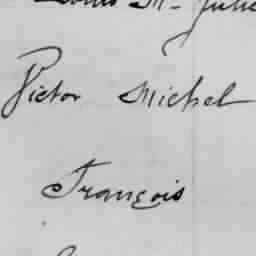 Louis M- Julie
Victor Michel
François